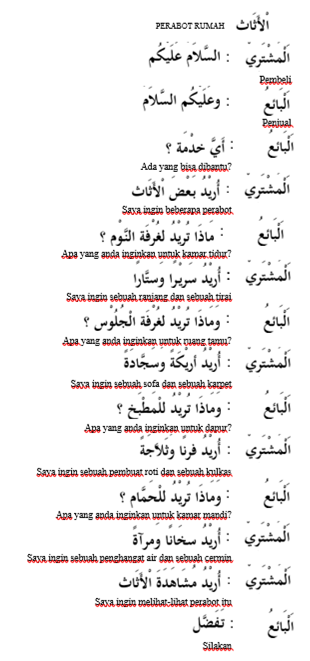 الْأَثَاث PERABOT RUMAH
اَلْمُشْتَرِيْ : السَّلاَمُ عَلَيْكُم
Pembeli
اَلْبَائعُ : وعَلَيْكُم السَّلاَمْ
Penjual
اَلْبَائعُ : أَيَّ خدْمَة ؟
Ada yang bisa dibantu?
اَلْمُشْتَرِيْ : أُرِيْدُ بَعْضَ الْأَثَاث
Saya ingin beberapa perabot
اَلْبَائعُ : مَاذَا تُرِيْدُ لغُرْفَة النَّوْم ؟
Apa yang anda inginkan untuk kamar tidur?
اَلْمُشْتَرِيْ : أُرِيْدُ سَرِيْرًا وستَّارا
Saya ingin sebuah ranjang dan sebuah tirai
اَلْبَائعُ : وَمَاذَا تُرِيْدُ لغُرْفَة الْجُلُوْس ؟
Apa yang anda inginkan untuk ruang tamu?
اَلْمُشْتَرِيْ : أُرِيْدُ أَرِيْكَةً وَسَجَّادَةً
Saya ingin sebuah sofa dan sebuah karpet
اَلْبَائعُ : وَمَاذَا تُرِيْدُ للْمَطْبَخ ؟
Apa yang anda inginkan untuk dapur?
اَلْمُشْتَرِيْ : أُرِيْدُ فرْنًا وَثَلاَجَةً
Saya ingin sebuah pembuat roti dan sebuah kulkas
اَلْبَائعُ : وَمَاذَا تُرِيْدُ للْحَمَّام ؟
Apa yang anda inginkan untuk kamar mandi?
اَلْمُشْتَرِيْ : أُرِيْدُ سَخَانًا وَمرآةً
Saya ingin sebuah penghangat air dan sebuah cermin
اَلْمُشْتَرِيْ : أُرِيْدُ مُشَاهَدَةَ الْأَثَاث
Saya ingin melihat-lihat perabot itu
اَلْبَائعُ : تَفَضَّل
Silakan